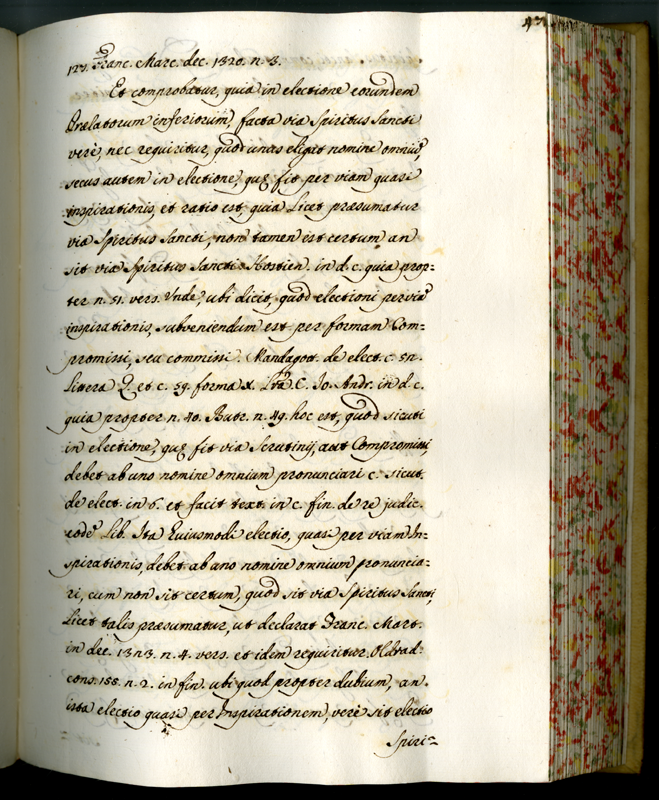 123. Franc. Marc. dec. 1320. n. 3.
Et comprobatur, quia in electione eorundem
Prælatorum inferiorum, facta via Spiritus Sancti
verè, nec requiritur, quod unus eligat nomine omniũ,
secus autem in electione, quę fit per viam quasi
inspirationis, et ratio est, quia Licet præsumatur
via Spiritus Sancti, non tamen est certum an
sit via Spiritus Sancti. Hostien. in d. c. quia prop=
ter n. 51. vers. Unde, ubi dicit, quod electioni per viã
inspirationis, subveniendum est per formam Com=
promissi, seu commissi. Mandagot. de elect. c. 5n.
Littera Q. et c. 59. forma X. Lrã C. Jo. Andr. in d. c.
quia propter n. 40. Butr. n. 49. hoc est, quod sicuti
in electione, quę fit via Scrutinij, aut Compromissi,
debet ab uno nomine omnium pronunciari c. sicut.
de elect. in 6. et facit text. in c. fin. de re judic.
eodẽ Lib. Ita huiusmodi electio, quasi per viam In=
spirationis, debet ab uno nomine omnium pronuncia=
ri, cum non sit certum, quod sit via Spiritus Sancti,
Licet talis præsumatur, ut declarat Franc. Marc.
in dec. 1323. n. 4. vers. et idem requiritur. Oldrad=
cons. 155. n. 2. in fin. ubi quod propter dubium, an.
ista electio quasi per Inspirationem, verè sit electio
Spiri=